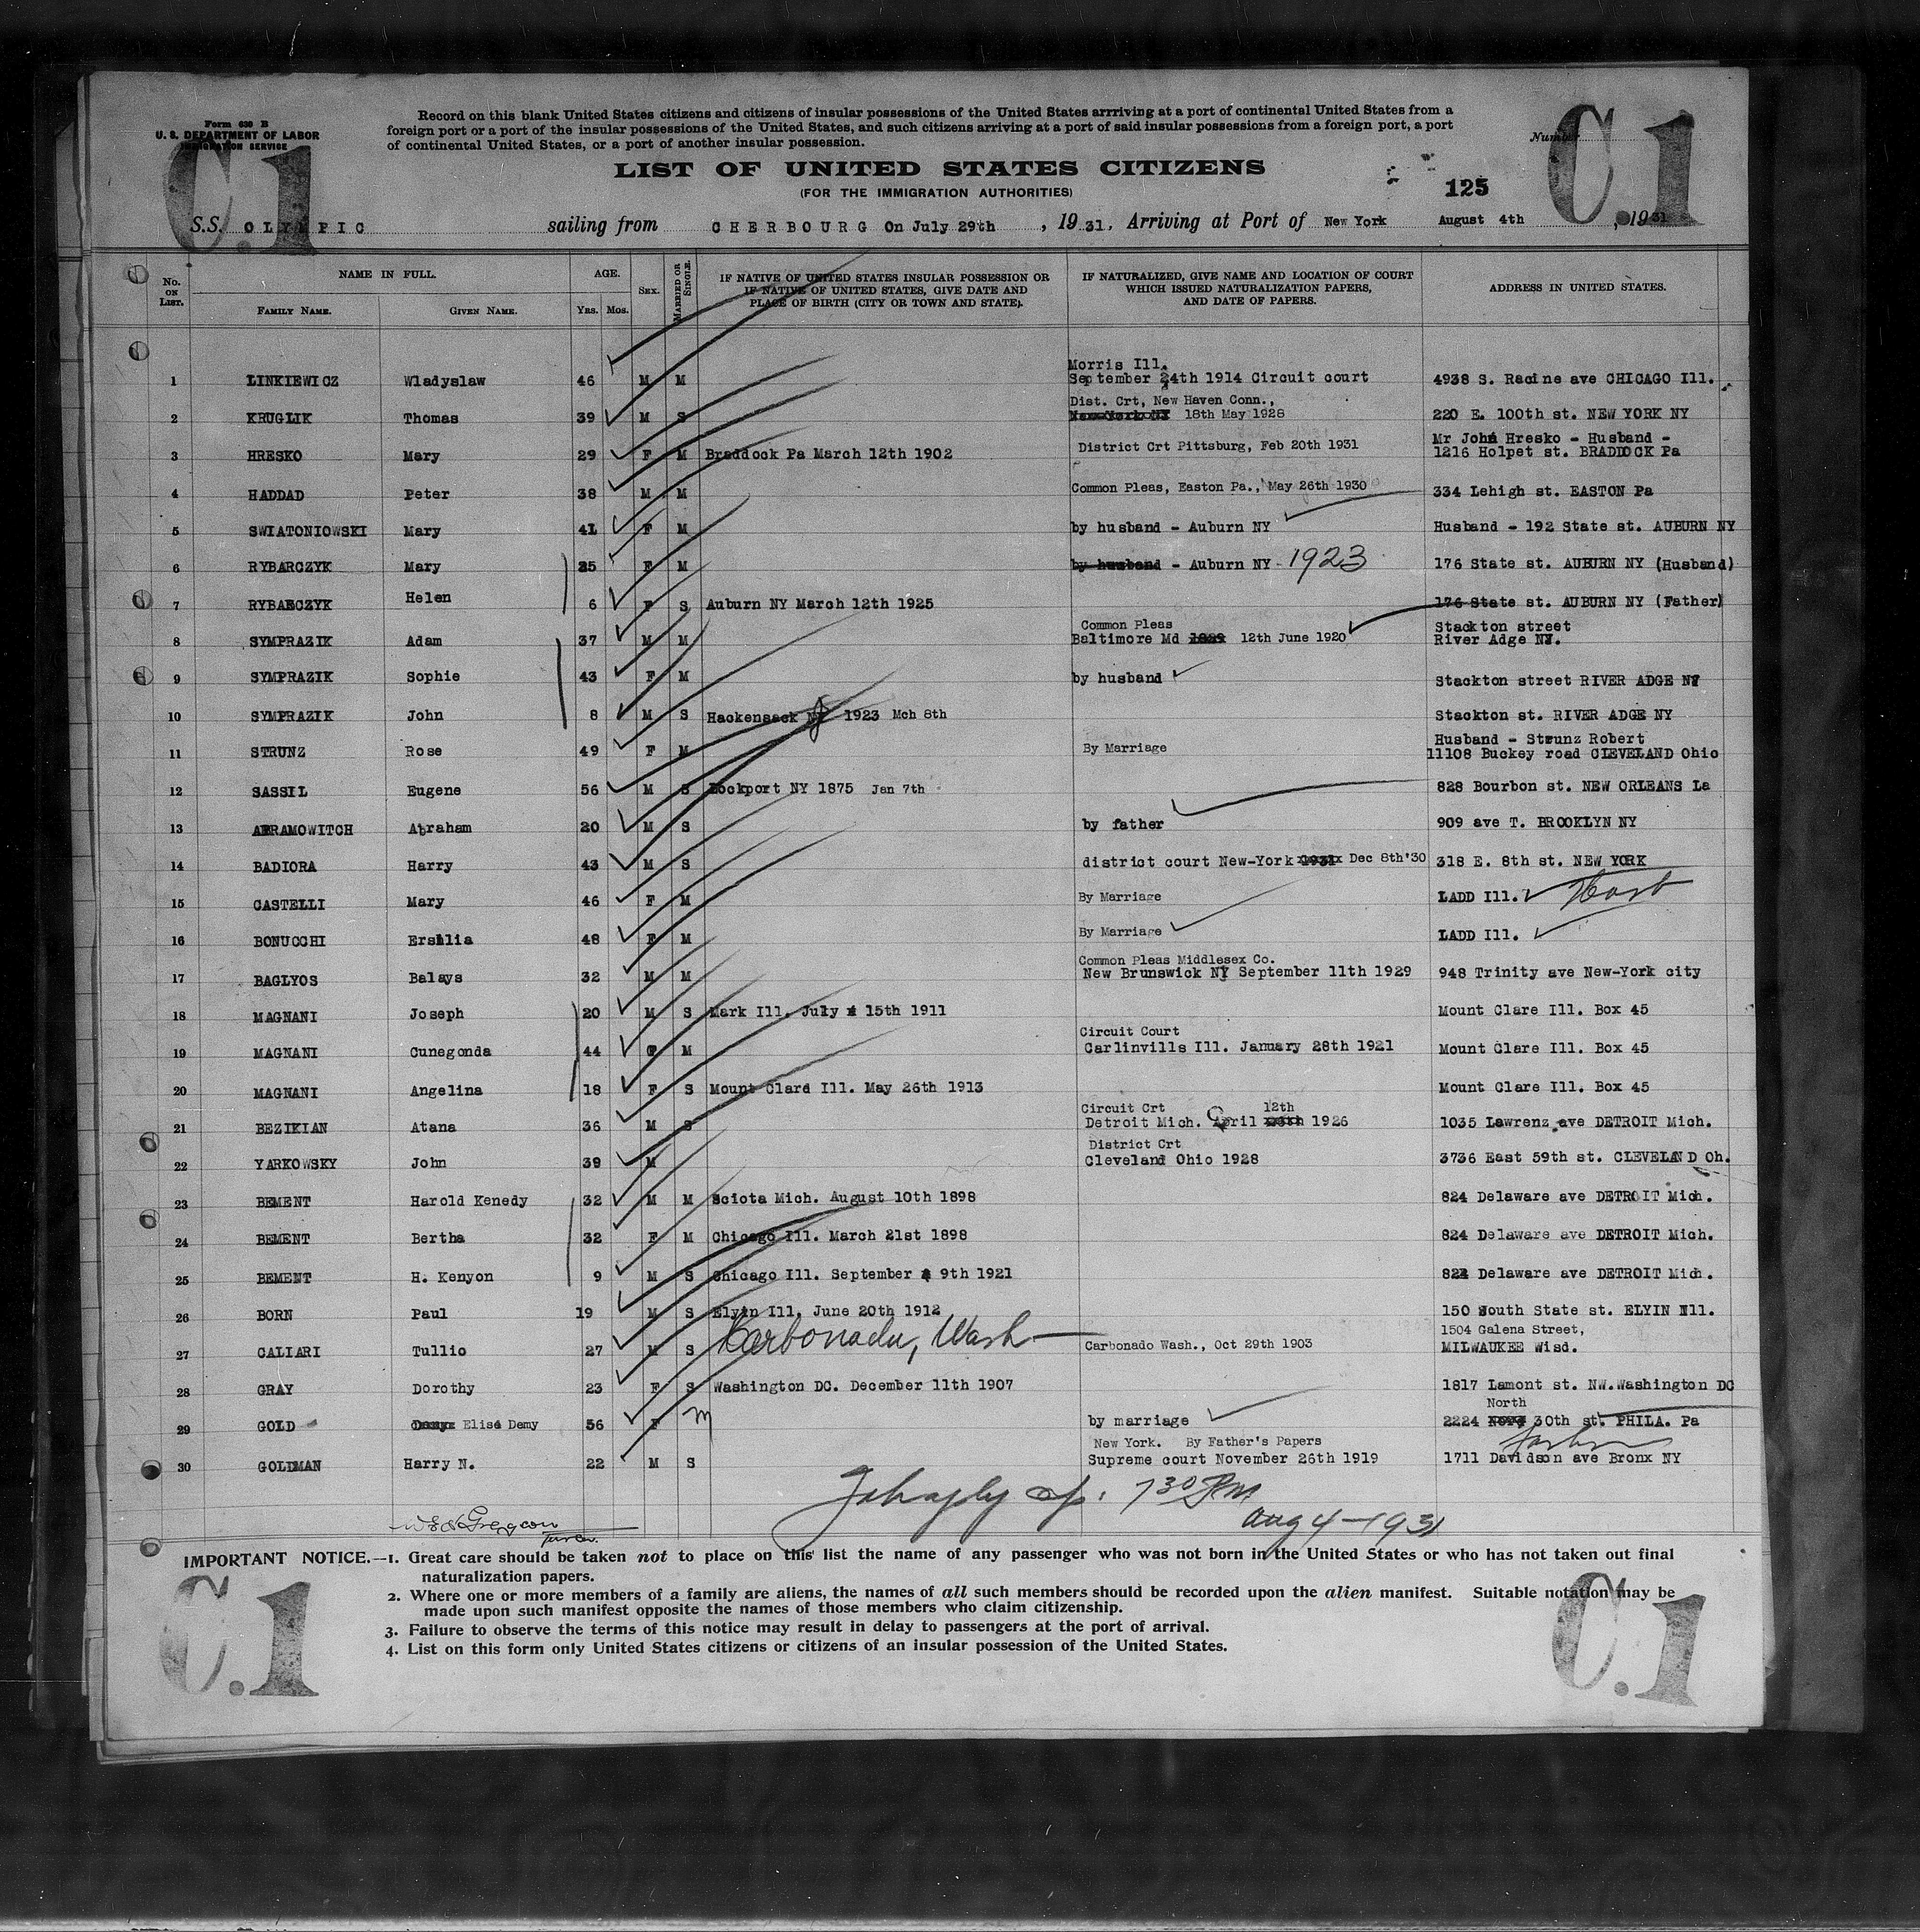 Form 630 B
U. S. DEPARTMENT OF LABOR
IMMIGRATION SERVICE
C.1
Record on this blank United States citizens and citizens of insular possessions of the United States arrriving at a port of continental United States from a
foreign port or a port of the insular possessions of the United States, and such citizens arriving at a port of said insular possessions from a foreign port, a port
of continental United States, or a port of another insular possession.
Number
C.1
LIST OF UNITED STATES CITIZENS
(FOR THE IMMIGRATION AUTHORITIES)
125
S.S. OLYMPIC sailing from CHERBOURG On July 29th, 1931. Arriving at Port of New York August 4th, 1931
No. ON LIST. NAME IN FULL. FAMILY NAME. GIVEN NAME. AGE. YRS. MOS. SEX. MARRIED OR SINGLE. IF NATIVE OF UNITED STATES INSULAR POSSESSION OR IF NATIVE OF UNITED STATES, GIVE DATE AND PLACE OF BIRTH (CITY OR TOWN AND STATE). IF NATURALIZED, GIVE NAME AND LOCATION OF COURT WHICH ISSUED NATURALIZATION PAPERS, AND DATE OF PAPERS. ADDRESS IN UNITED STATES.
Morris Ill.
1 LINKIEWICZ Wladyslaw 46 M M September 24th 1914 Circuit court 4938 S. Racine ave CHICAGO Ill.
Dist. Crt, New Haven Conn.,
2 KRUGLIK Thomas 39 M S New York NY 18th May 1928 220 E. 100th st. NEW YORK NY
Mr John Hresko - Husband -
3 HRESKO Mary 29 F M Braddock Pa March 12th 1902 District Crt Pittsburg, Feb 20th 1931 1216 Holpet st. BRADDOCK Pa
4 HADDAD Peter 38 M M Common Pleas, Easton Pa., May 26th 1930 334 Lehigh st. EASTON Pa
5 SWIATONIOWSKI Mary 41 F M by husband - Auburn NY Husband - 192 State st. AUBURN NY
6 RYBARCZYK Mary 25 F M by husband - Auburn NY - 1923 176 State st. AUBURN NY (Husband)
7 RYBARCZYK Helen 6 F S Auburn NY March 12th 1925 176 State st. AUBURN NY (Father)
Common Pleas Stackton street
8 SYMPRAZIK Adam 37 M M Baltimore Md 12th June 1920 River Adge NJ.
9 SYMPRAZIK Sophie 43 F M by husband Stackton street RIVER ADGE NY
10 SYMPRAZIK John 8 M S Hackensack NJ 1923 Mch 8th Stackton st. RIVER ADGE NY
Husband - Strunz Robert
11 STRUNZ Rose 49 F M By Marriage 11108 Buckey road CLEVELAND Ohio
12 SASSIL Eugene 56 M S Lockport NY 1875 Jan 7th 828 Bourbon st. NEW ORLEANS La
13 ABRAMOWITCH Abraham 20 M S by father 909 ave T. BROOKLYN NY
14 BADIORA Harry 43 M S district court New-York Dec 8th'30 318 E. 8th st. NEW YORK
15 CASTELLI Mary 46 F M By Marriage LADD Ill.
16 BONUCCHI Ersilia 48 F M By Marriage LADD Ill.
Common Pleas Middlesex Co.
17 BAGLYOS Balays 32 M M New Brunswick NJ September 11th 1929 948 Trinity ave New-York city
18 MAGNANI Joseph 20 M S Mark Ill. July 15th 1911 Mount Clare Ill. Box 45
Circuit Court
19 MAGNANI Cunegonda 44 F M Carlinvills Ill. January 28th 1921 Mount Clare Ill. Box 45
20 MAGNANI Angelina 18 F S Mount Clard Ill. May 26th 1913 Mount Clare Ill. Box 45
Circuit Crt 12th
21 BEZIKIAN Atana 36 M S Detroit Mich. April 1926 1035 Lawrenz ave DETROIT Mich.
District Crt
22 YARKOWSKY John 39 M Cleveland Ohio 1928 3736 East 59th st. CLEVELAND Oh.
23 BEMENT Harold Kenedy 32 M M Sciota Mich. August 10th 1898 824 Delaware ave DETROIT Mich.
24 BEMENT Bertha 32 F M Chicago Ill. March 21st 1898 824 Delaware ave DETROIT Mich.
25 BEMENT H. Kenyon 9 M S Chicago Ill. September 9th 1921 824 Delaware ave DETROIT Mich.
26 BORN Paul 19 M S Elyin Ill. June 20th 1912 150 South State st. ELYIN Ill.
Carbonadu, Wash 1504 Galena Street,
27 CALIARI Tullio 27 M S Carbonado Wash., Oct 29th 1903 MILWAUKEE Wisd.
28 GRAY Dorothy 23 F S Washington DC. December 11th 1907 1817 Lamont st. NW.Washington DC
North
29 GOLD Elise Demy 56 F M by marriage 2224 30th st. PHILA. Pa
New York. By Father's Papers
30 GOLDMAN Harry N. 22 M S Supreme court November 26th 1919 1711 Davidson ave Bronx NY
7 30 PM
Aug 4-1931
IMPORTANT NOTICE.—1. Great care should be taken not to place on this list the name of any passenger who was not born in the United States or who has not taken out final
naturalization papers.
2. Where one or more members of a family are aliens, the names of all such members should be recorded upon the alien manifest. Suitable notation may be
made upon such manifest opposite the names of those members who claim citizenship.
3. Failure to observe the terms of this notice may result in delay to passengers at the port of arrival.
4. List on this form only United States citizens or citizens of an insular possession of the United States.
C.1
C.1